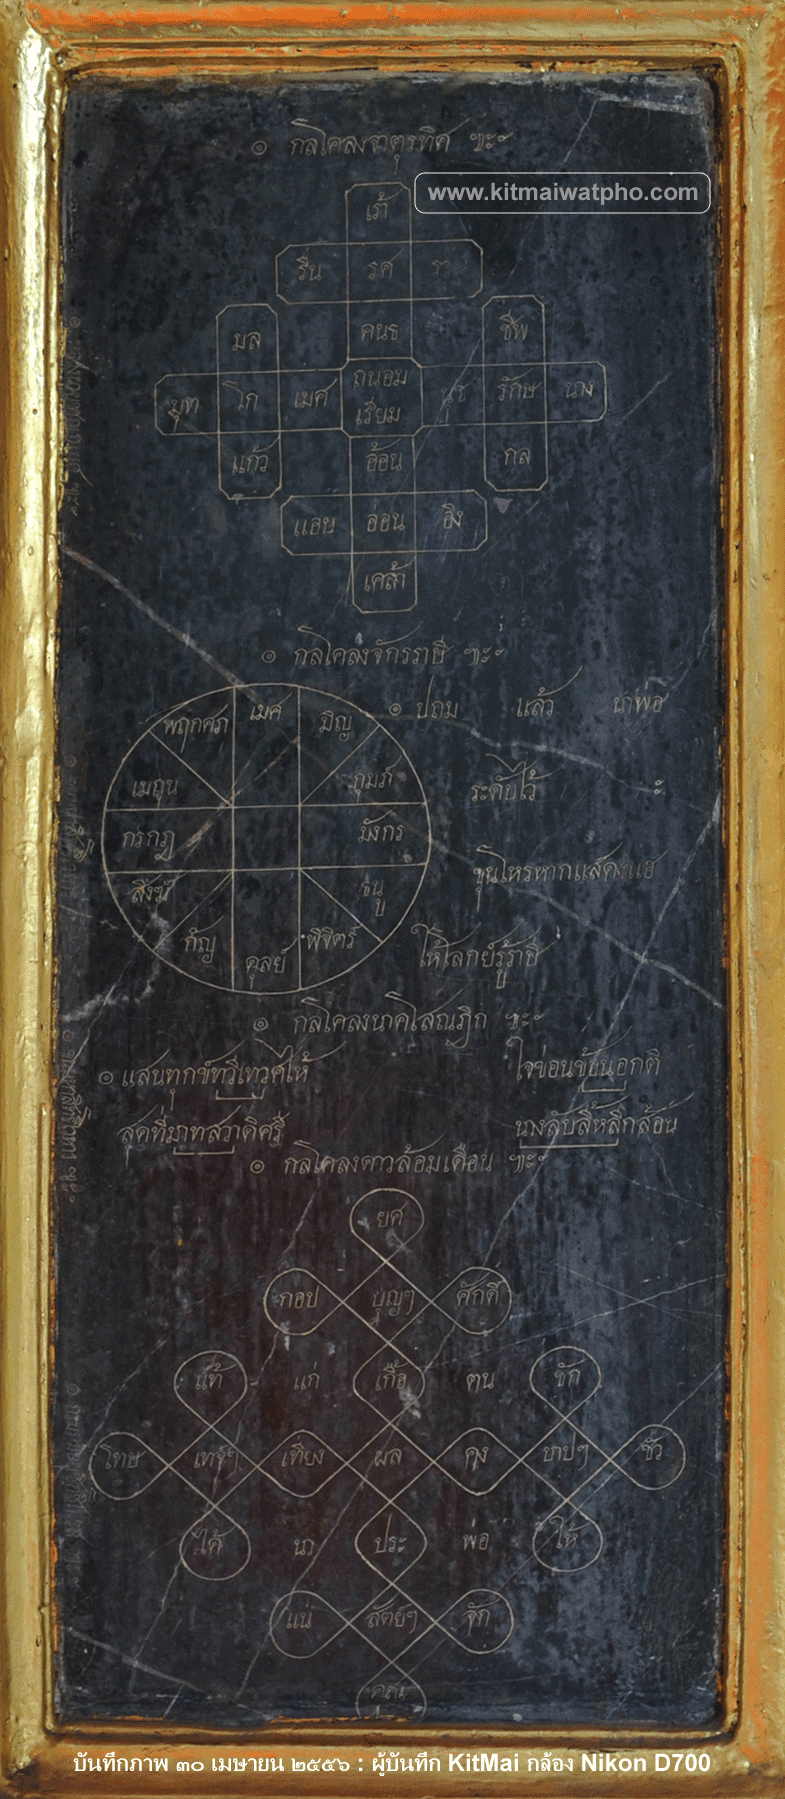 ๏ กลโคลงจาตุรทิศ ฯะ๛
www.kitmaiwatpho.com
เร้า
รื่น รศ รวย
มล คนธ ชีพ
มุท โก เมศ ถนอม นุช รักษ นาง
เรียม
แก้ว อ้อน กล
แอบ ออน อิง
เคล้า
๏ กลโคลงจักรราษี ฯะ
พฤกศภ เมศ มิญ
๏ ปถม แล้ว นาพ่อ
เมถุน กุมภ์
ระดับไว้ ะ
กรกฎ มังกร
ขุนโหรหากแสดงแฮ
สิงฆ์ ธนู
กัญ ดุลย์ พิจิตร์
ให้โลกย์รู้ราษี
๏ กลโคลงนาคโสณฑิก ฯะ
๏ แสนทุกข์ทวีเทวศไห้ ใจข่อนข้อนอกติ
สุดที่มาทสวาดิศรี นางลับลี้หลีกล้อน
๏ กลโคลงดาวล้อมเดือน ฯะ
ยศ
กอป บุญๆ ศักดิ์
แท้ แก่ เกื้อ ตน ชัก
โทษ เที่ยง ผล คง บาปๆ ชั่ว
ได้ นา ประ พ่อ ให้
แน่ สัตย์ๆ จัก
บันทึกภาพ ๓๐ เมษายน ๒๕๕๖ : ผู้บันทึก KitMai กล้อง Nikon D700